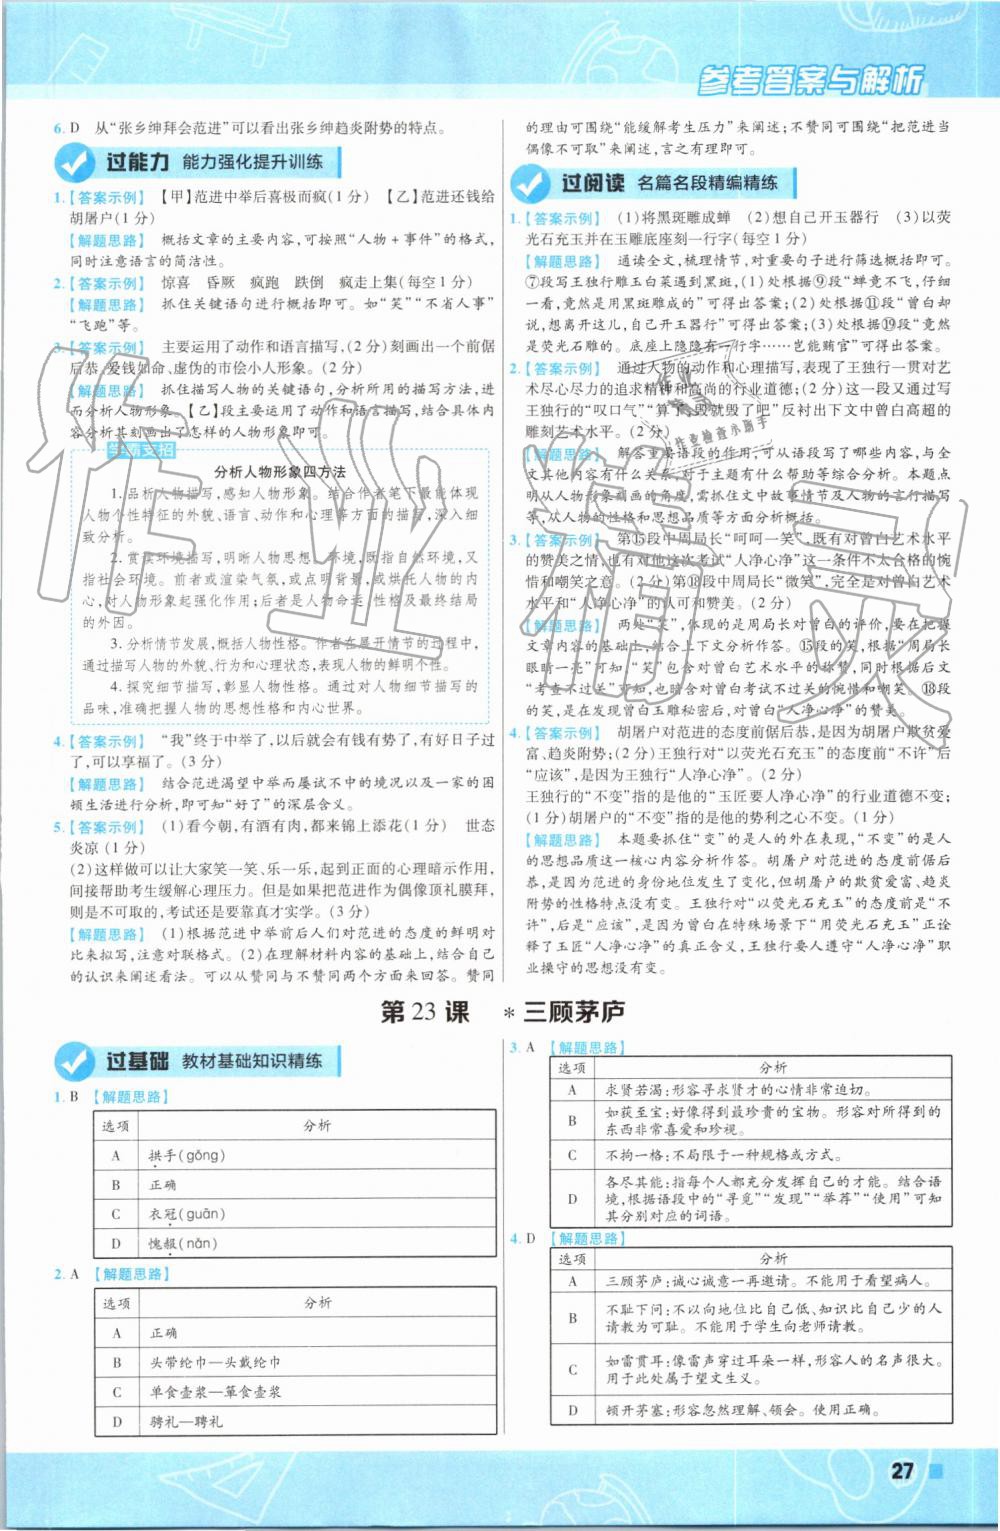 参考答案与解析
6. D 从“张乡绅拜会范进”可以看出张乡绅趋炎附势的特点。
过能力 能力强化提升训练
1.【答案示例】 【甲】范进中举后喜极而疯(1分) 【乙】范进还钱给
胡屠户(1分)
【解题思路】 概括文章的主要内容,可按照“人物+事件”的格式,
同时注意语言的简洁性。
2.【答案示例】 惊喜 昏厥 疯跑 跌倒 疯走上集(每空1分)
【解题思路】 抓住关键语句进行概括即可。如“笑”“不省人事”
“飞跑”等。
3.【答案示例】 主要运用了动作和语言描写,(2分)刻画出一个前倨
后恭、爱钱如命、虚伪的市侩小人形象。(2分)
【解题思路】 抓住描写人物的关键语句,分析所用的描写方法,进
而分析人物形象。【乙】段主要运用了动作和语言描写,结合具体内
容分析其刻画出了怎样的人物形象即可。
学霸支招
分析人物形象四方法
1.品析人物描写,感知人物形象。结合作者笔下最能体现
人物个性特征的外貌、语言、动作和心理等方面的描写,深入细
致分析。
2.赏读环境描写,明晰人物思想。环境,既指自然环境,又
指社会环境。前者或渲染气氛,或点明背景,或烘托人物的内
心,对人物形象起强化作用;后者是人物命运、性格及最终结局
的外因。
3.分析情节发展,概括人物性格。作者在展开情节的过程中,
通过描写人物的外貌、行为和心理状态,表现人物的鲜明个性。
4.探究细节描写,彰显人物性格。通过对人物细节描写的
品味,准确把握人物的思想性格和内心世界。
4.【答案示例】 “我”终于中举了,以后就会有钱有势了,有好日子过
了,可以享福了。(3分)
【解题思路】 结合范进渴望中举而屡试不中的境况以及一家的困
顿生活进行分析,即可知“好了”的深层含义。
5.【答案示例】 (1)看今朝,有酒有肉,都来锦上添花(1分) 世态
炎凉(1分)
(2)这样做可以让大家笑一笑、乐一乐,起到正面的心理暗示作用,
间接帮助考生缓解心理压力。但是如果把范进作为偶像顶礼膜拜,
则是不可取的,考试还是要靠真才实学。(3分)
【解题思路】 (1)根据范进中举前后人们对范进的态度的鲜明对
比来拟写,注意对联格式。(2)在理解材料内容的基础上,结合自己
的认识来阐述看法。可以从赞同与不赞同两个方面来回答。赞同
的理由可围绕“能缓解考生压力”来阐述;不赞同可围绕“把范进当
偶像不可取”来阐述,言之成理即可。
过阅读 名篇名段精编精练
1.【答案示例】 (1)将黑斑雕成蝉 (2)想自己开玉器行 (3)以荧
光石充玉并在玉雕底座刻一行字(每空1分)
【解题思路】 通读全文,梳理情节,对重要句子进行筛选概括即可。
⑦段写王独行雕玉白菜遇到黑斑,(1)处根据⑨段“蝉竟不飞,仔细
一看,竟然是用黑斑雕成的”可得出答案;(2)处根据⑪段“曾白却
说,想离开这儿,自己开玉器行”可得出答案;(3)处根据⑲段“竟然
是荧光石雕的。底座上隐隐有一行字……岂能贿官”可得出答案。
2.【答案示例】 通过人物的动作和心理描写,表现了王独行一贯对艺
术尽心尽力的追求精神和高尚的行业道德;(2分)这一段又通过写
王独行的“叹口气”“算了,毁就毁了吧”反衬出下文中曾白高超的
雕刻艺术水平。(2分)
【解题思路】 解答重要语段的作用,可以从语段写了哪些内容,与全
文其他内容有什么关系,对于主题有什么帮助等综合分析。本题点
明从人物形象刻画的角度,需抓住文中故事情节及人物的言行描写
等,从人物的性格和思想品质等方面分析概括。
3.【答案示例】 第⑮段中周局长“呵呵一笑”,既有对曾白艺术水平
的赞美之情,也有对他这次考试“人净心净”这一条件不太合格的惋
惜和嘲笑之意。(2分)第⑱段中周局长“微笑”,完全是对曾白艺术
水平和“人净心净”的认可和赞美。(2分)
【解题思路】 两处“笑”,体现的是周局长对曾白的评价,要在把握
文章内容的基础上,结合上下文分析作答。⑮段的笑,根据“周局长
眼睛一亮”可知,“笑”包含对曾白艺术水平的称赞,同时根据后文
“考查不过关”可知,也暗含对曾白考试不过关的惋惜和嘲笑。⑱段
的笑,是在发现曾白玉雕秘密后,对曾白“人净心净”的赞美。
4.【答案示例】 胡屠户对范进的态度前倨后恭,是因为胡屠户欺贫爱
富、趋炎附势;(2分)王独行对“以荧光石充玉”的态度前“不许”后
“应该”,是因为王独行“人净心净”。(2分)
王独行的“不变”指的是他的“玉匠要人净心净”的行业道德不变;
(1分)胡屠户的“不变”指的是他的势利之心不变。(1分)
【解题思路】 本题要抓住“变”的是人的外在表现,“不变”的是人
的思想品质这一核心内容分析作答。胡屠户对范进的态度前倨后
恭,是因为范进的身份地位发生了变化,但胡屠户的欺贫爱富、趋炎
附势的性格特点没有变。王独行对“以荧光石充玉”的态度前是“不
许”,后是“应该”,是因为曾白在特殊场景下“用荧光石充玉”正诠
释了玉匠“人净心净”的真正含义,王独行要人遵守“人净心净”职
业操守的思想没有变。
第23课 *三顾茅庐
过基础 教材基础知识精练
1. B 【解题思路】
选项 分析
A 拱手(gǒng)
B 正确
C 衣冠(guān)
D 愧赧(nǎn)
2. A 【解题思路】
选项 分析
A 正确
B 头带纶巾—头戴纶巾
C 单食壶浆—箪食壶浆
D 骋礼—聘礼
3. A 【解题思路】
选项 分析
A 求贤若渴:形容寻求贤才的心情非常迫切。
B 如获至宝:好像得到最珍贵的宝物。形容对所得到的
东西非常喜爱和珍视。
C 不拘一格:不局限于一种规格或方式。
D 各尽其能:指每个人都充分发挥自己的才能。结合语
境,根据语段中的“寻觅”“发现”“举荐”“使用”可知
其分别对应的词语。
4. D 【解题思路】
选项 分析
A 三顾茅庐:诚心诚意一再邀请。不能用于看望病人。
B 不耻下问:不以向地位比自己低、知识比自己少的人
请教为可耻。不能用于学生向老师请教。
C 如雷贯耳:像雷声穿过耳朵一样,形容人的名声很大。
用于此处属于望文生义。
D 顿开茅塞:形容忽然理解、领会。使用正确。
27
作业精灵
作业检查小助手